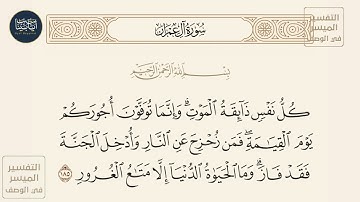 سُورَةُ آلِ عِمْرَان
التفسير
الميسر
في الوصف
بِسْمِ اللَّهِ الرَّحْمَٰنِ الرَّحِيمِ
كُلُّ نَفْسٍ ذَآئِقَةُ ٱلْمَوْتِ ۗ وَإِنَّمَا تُوَفَّوْنَ أُجُورَكُمْ
يَوْمَ ٱلْقِيَٰمَةِ ۖ فَمَن زُحْزِحَ عَنِ ٱلنَّارِ وَأُدْخِلَ ٱلْجَنَّةَ
فَقَدْ فَازَ ۗ وَمَا ٱلْحَيَوٰةُ ٱلدُّنْيَآ إِلَّا مَتَٰعُ ٱلْغُرُورِ ١٨٥
التفسير
الميسر
في الوصف